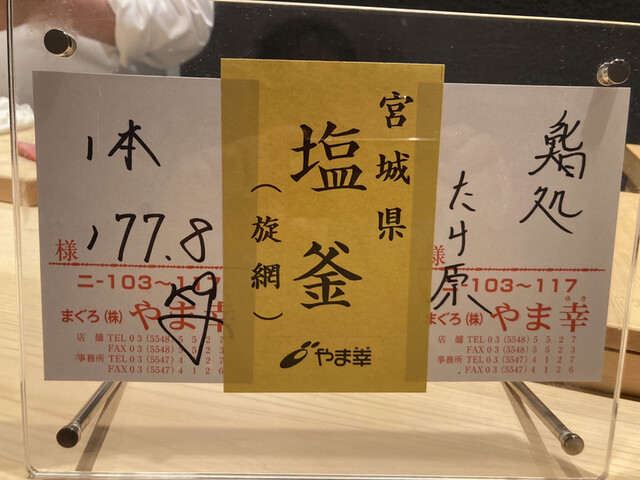 鮨処
たけ原
様
二-103～117
まぐろ(株)やま幸
ゆき
店舗 TEL 03 (5548) 5527
FAX 03 (5548) 5227
事務所 TEL 03 (5547) 4127
FAX 03 (5547) 4126
宮城県
塩釜
(旋網)
やま幸
1本
177.8
様
二-103～117
まぐろ(株)やま幸
店舗 TEL 03 (5548) 5527
FAX 03 (5548) 5227
事務所 TEL 03 (5547) 4127
FAX 03 (5547) 4126